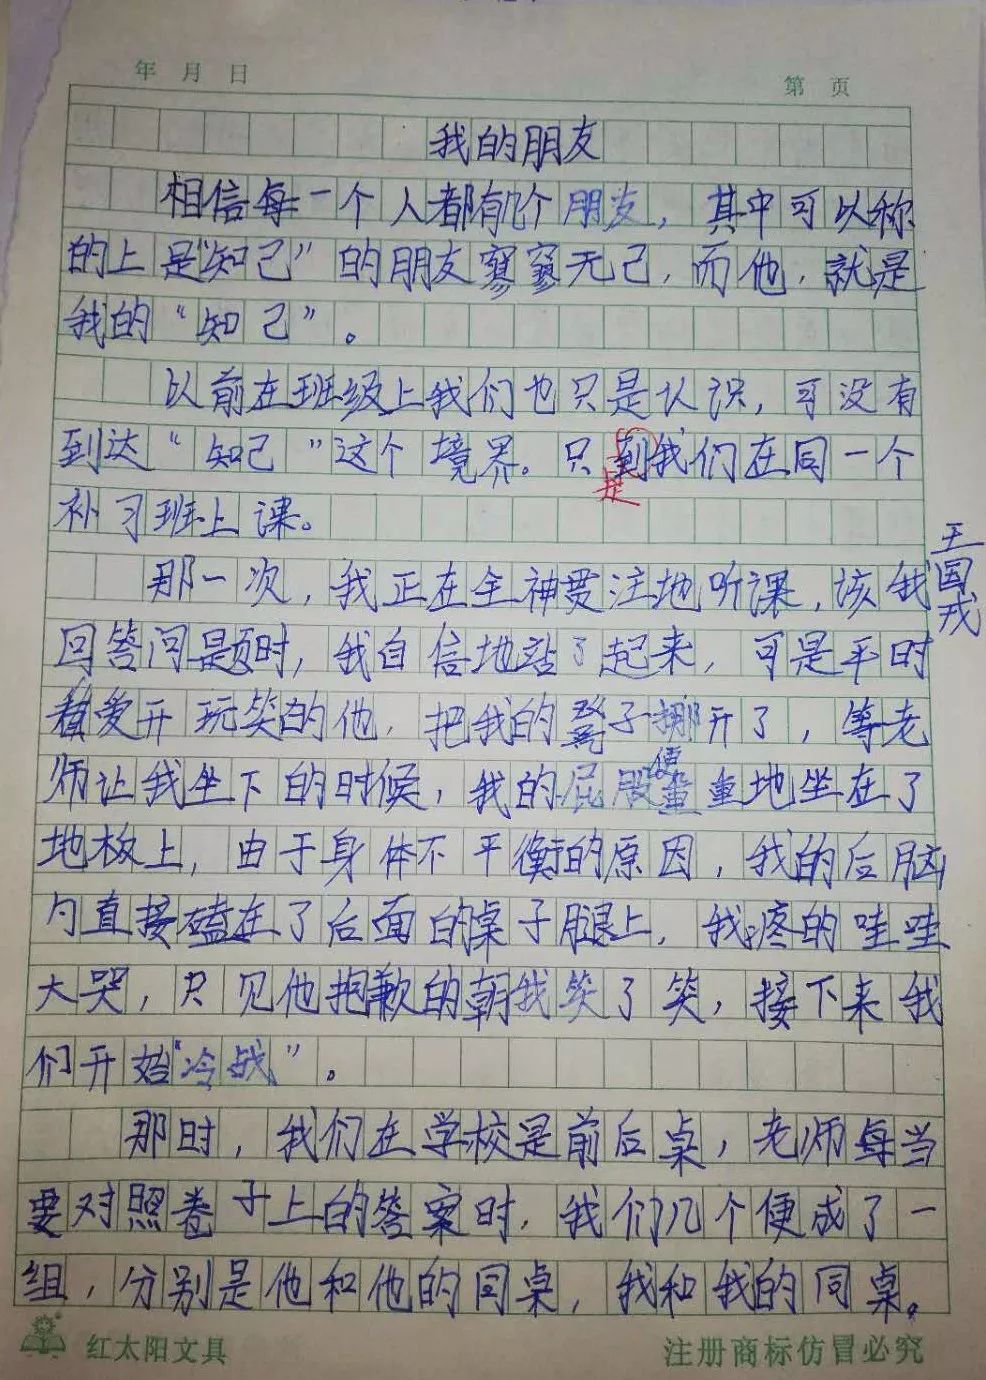 年 月 日
第 页
我的朋友
相信每一个人都有几个朋友，其中可以称
的上是“知己”的朋友寥寥无己，而他，就是
我的“知己”。
以前在班级上我们也只是认识，可没有
到达“知己”这个境界。只到我们在同一个
是
补习班上课。
那一次，我正在全神贯注地听课，该我
王国戎
回答问题时，我自信地站了起来，可是平时
爱开玩笑的他，把我的凳子挪开了，等老
便
师让我坐下的时候，我的屁股重重地坐在了
地板上，由于身体不平衡的原因，我的后脑
勺直接磕在了后面的桌子腿上，我疼的哇哇
大哭，只见他抱歉的朝我笑了笑，接下来我
们开始“冷战”。
那时，我们在学校是前后桌，老师每当
要对照卷子上的答案时，我们几个便成了一
组，分别是他和他的同桌，我和我的同桌。
红太阳文具
注册商标仿冒必究